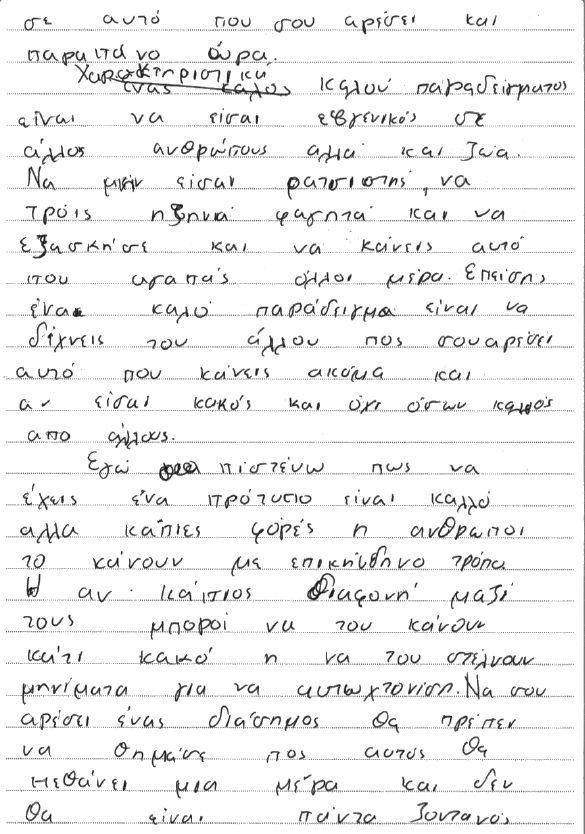 σε αυτό που σου αρέσει και
παραπάνο όυρα.
Χαρακτηριστικά
ένας καλος καλού παραδείγματος
είναι να είσαι εβγενικός σε
άλλος ανθρώπους αλλά και ζώα.
Να μην είσαι ρατσιστής, να
τρόις ηξηηιά φαγητά και να
εξασκήσε και να κάνεις αυτό
που αγαπάς όλλοι μέρα. Επείσης
ένα καλό παράδειγμα είναι να
δίχνεις του άλλου πος σουαρέσει
αυτό που κάνεις ακόμα και
αν είσαι κακός και όχι όσων καλός
απο άλλους.
Εγώ πιστέυω πως να
έχεις ένα πρότυπο είναι καλλό
αλλα κάπιες φορές η ανθρωποι
το κάνουν με επικήνδηνο τρόπω
αν κάπιος διαφονή μαζί
τους μποροί να του κάνουν
κάτι κακό η να του στέλνουν
μηνίματα για να αυτωχτονίση. Να σου
αρέσει ένας διάσημος θα πρέπεν
να θημάσε πος αυτός θα
πεθάνει μια μέρα και δεν
θα είναι πάντα ζοντανός